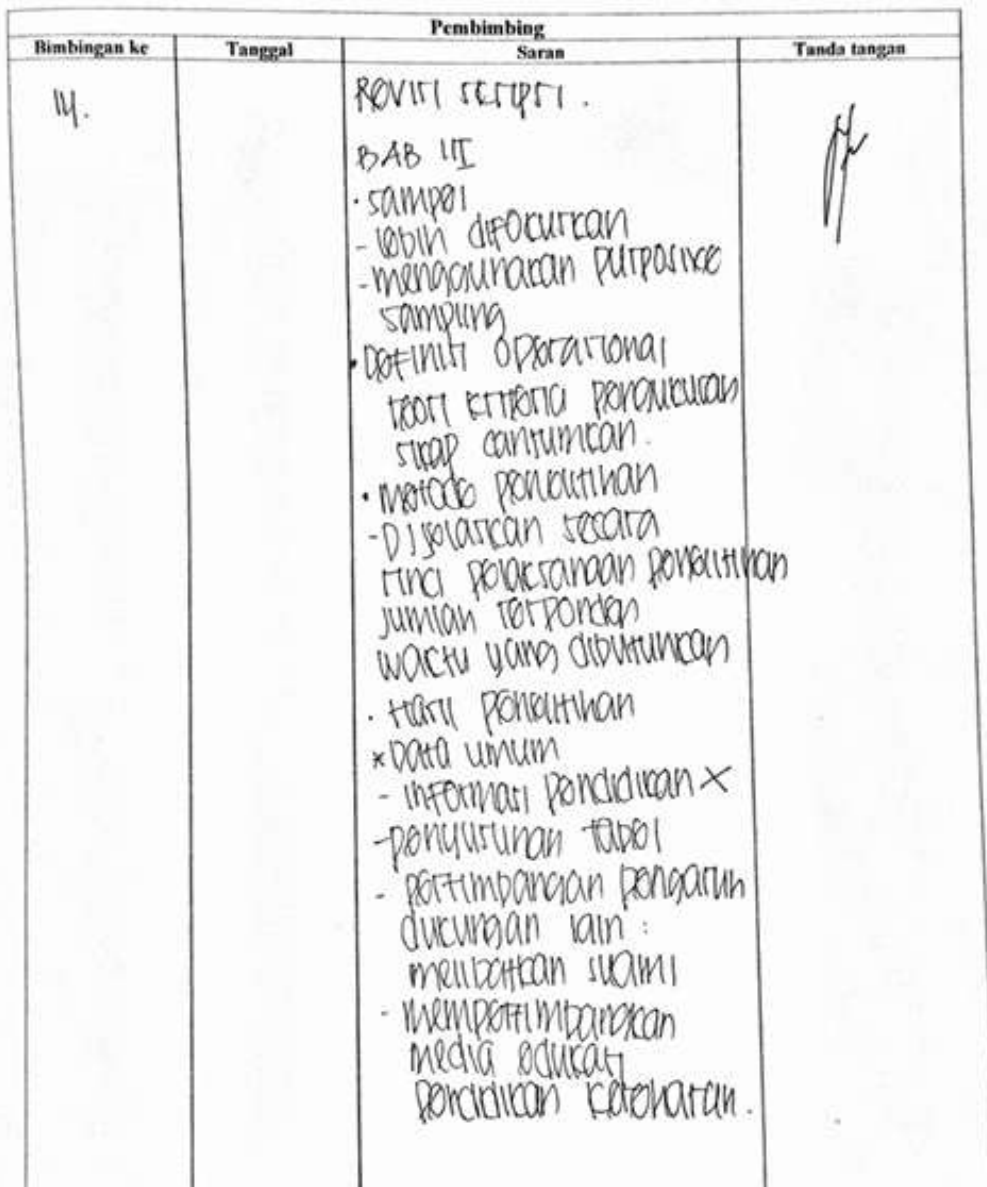 Pembimbing
Bimbingan ke Tanggal Saran Tanda tangan
Revisi skripsi.
BAB III
• sampel
- lebih difokuskan
- menggunakan purposive
sampling
• Definisi Operasional
teori kriteria pengukuran
sikap cantumkan.
• metode penelitian
- Dijelaskan secara
rinci pelaksanaan penelitian
jumlah responden
waktu yang dibutuhkan
• Hasil penelitian
* Data umum
- informasi pendidikan X
- penyusunan tabel
- pertimbangan pengaruh
dukungan lain :
melibatkan suami
- mempertimbangkan
media edukasi
pendidikan kesehatan.